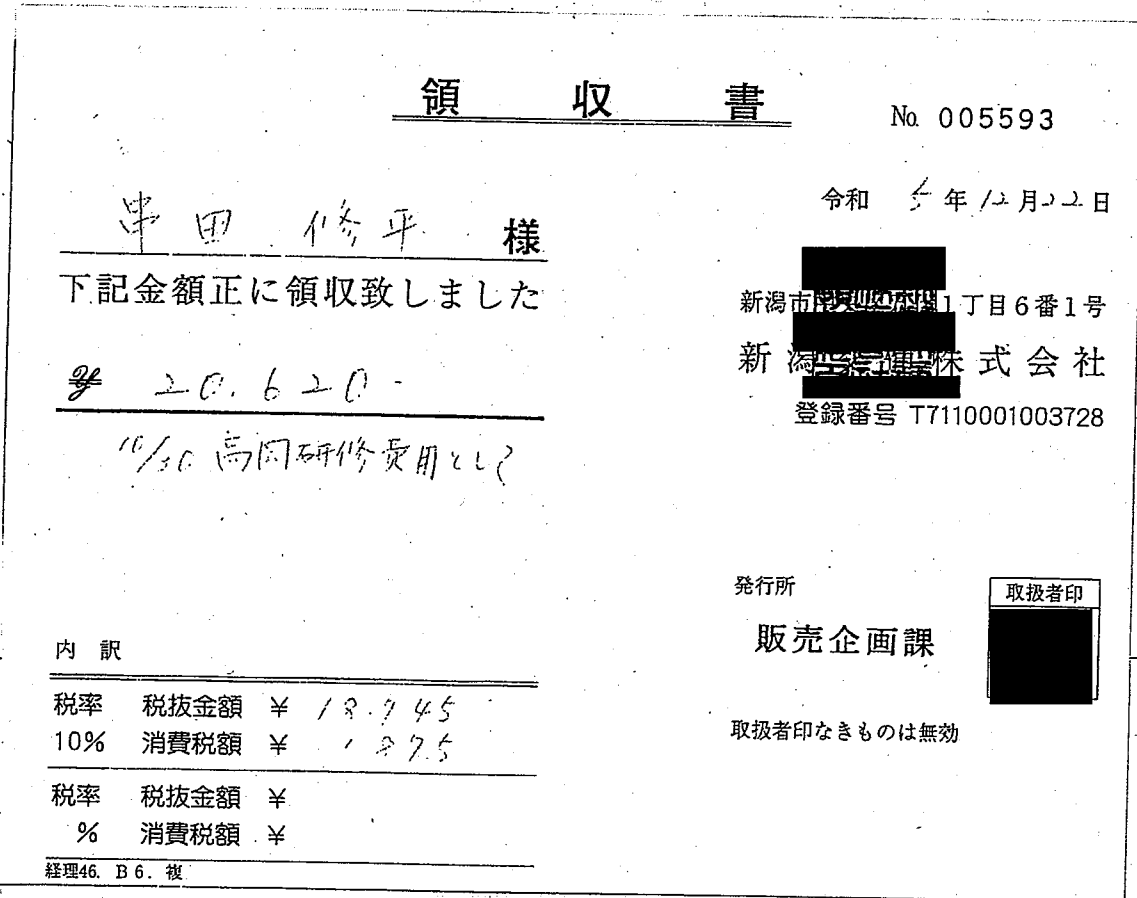 領収書
No. 005593
令和 5年12月22日
串田 修平 様
下記金額正に領収致しました
¥ 20.620-
10/30 高岡研修費用として
新潟市 1丁目6番1号
新潟 株式会社
登録番号 T7110001003728
発行所
販売企画課
取扱者印
取扱者印なきものは無効
内訳
税率 税抜金額 ¥ 18.745
10% 消費税額 ¥ 1875
税率 税抜金額 ¥
% 消費税額 ¥
経理46. B6. 複